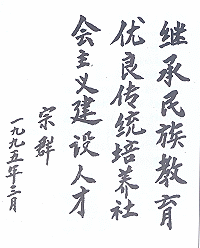 继承民族教育
优良传统培养社
会主义建设人才
宗群
一九九五年三月